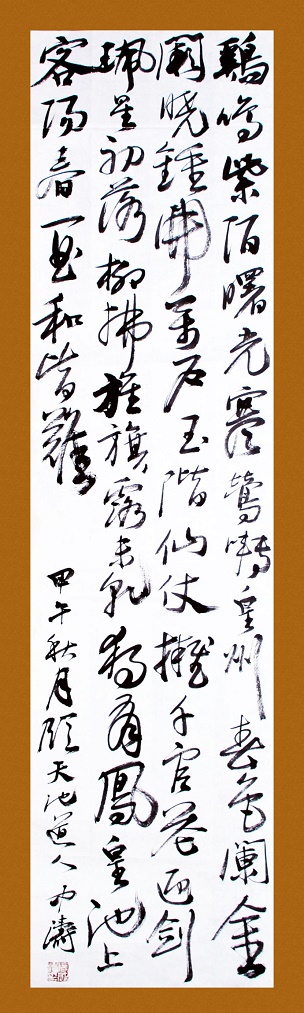 鷄鳴紫陌曙光寒鶯囀皇州春色闌金
闕曉鍾開萬戶玉階仙仗擁千官花迎劍
珮星初落柳拂旌旗露未乾獨有鳳皇池上
客陽春一曲和皆難
甲午秋月天池道人